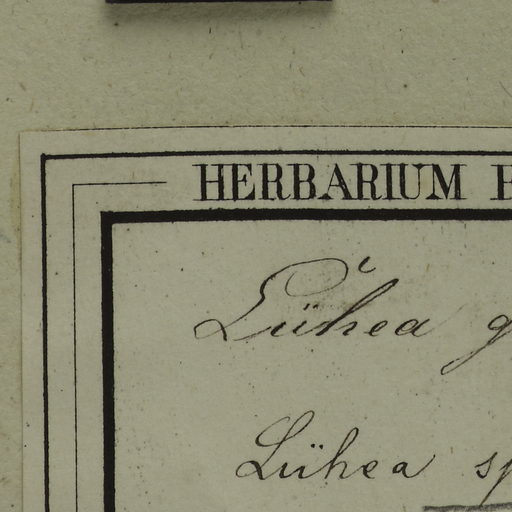 HERBARIUM
Lühea
Lühea